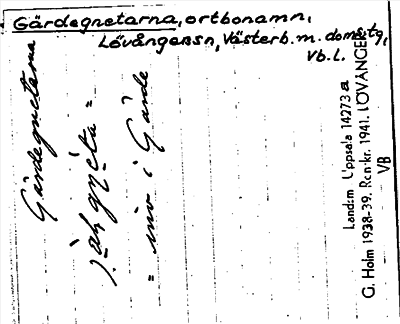 Gärdegnetarna, ortbonamn,
Lövånger sn, Västerb. m. doms.tg,
Vb. l.
Gärdegnetarna
= inv i Gärde
Landsm. Uppsala 14273 a
G. Holm 1938-39. Rcn·kr. 1941. LÖVÅNGER
VB